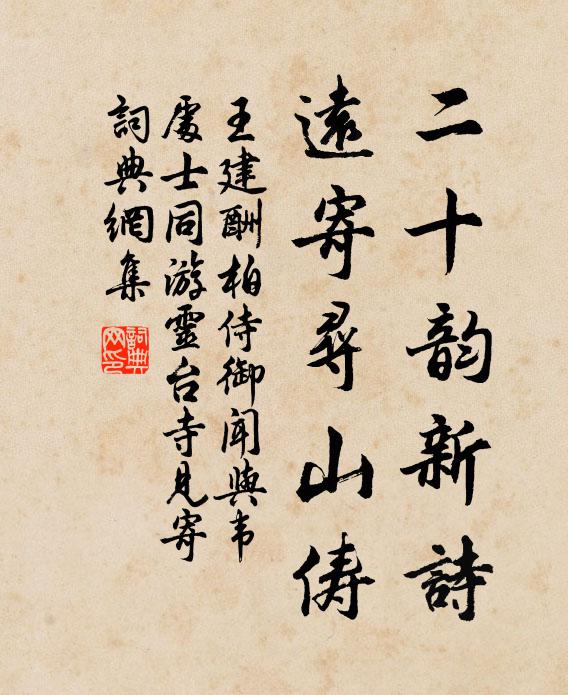 二十韵新詩
遠寄尋山儔
王建酬柏侍御聞與韦
處士同游靈台寺見寄
詞典網集
詞典网印